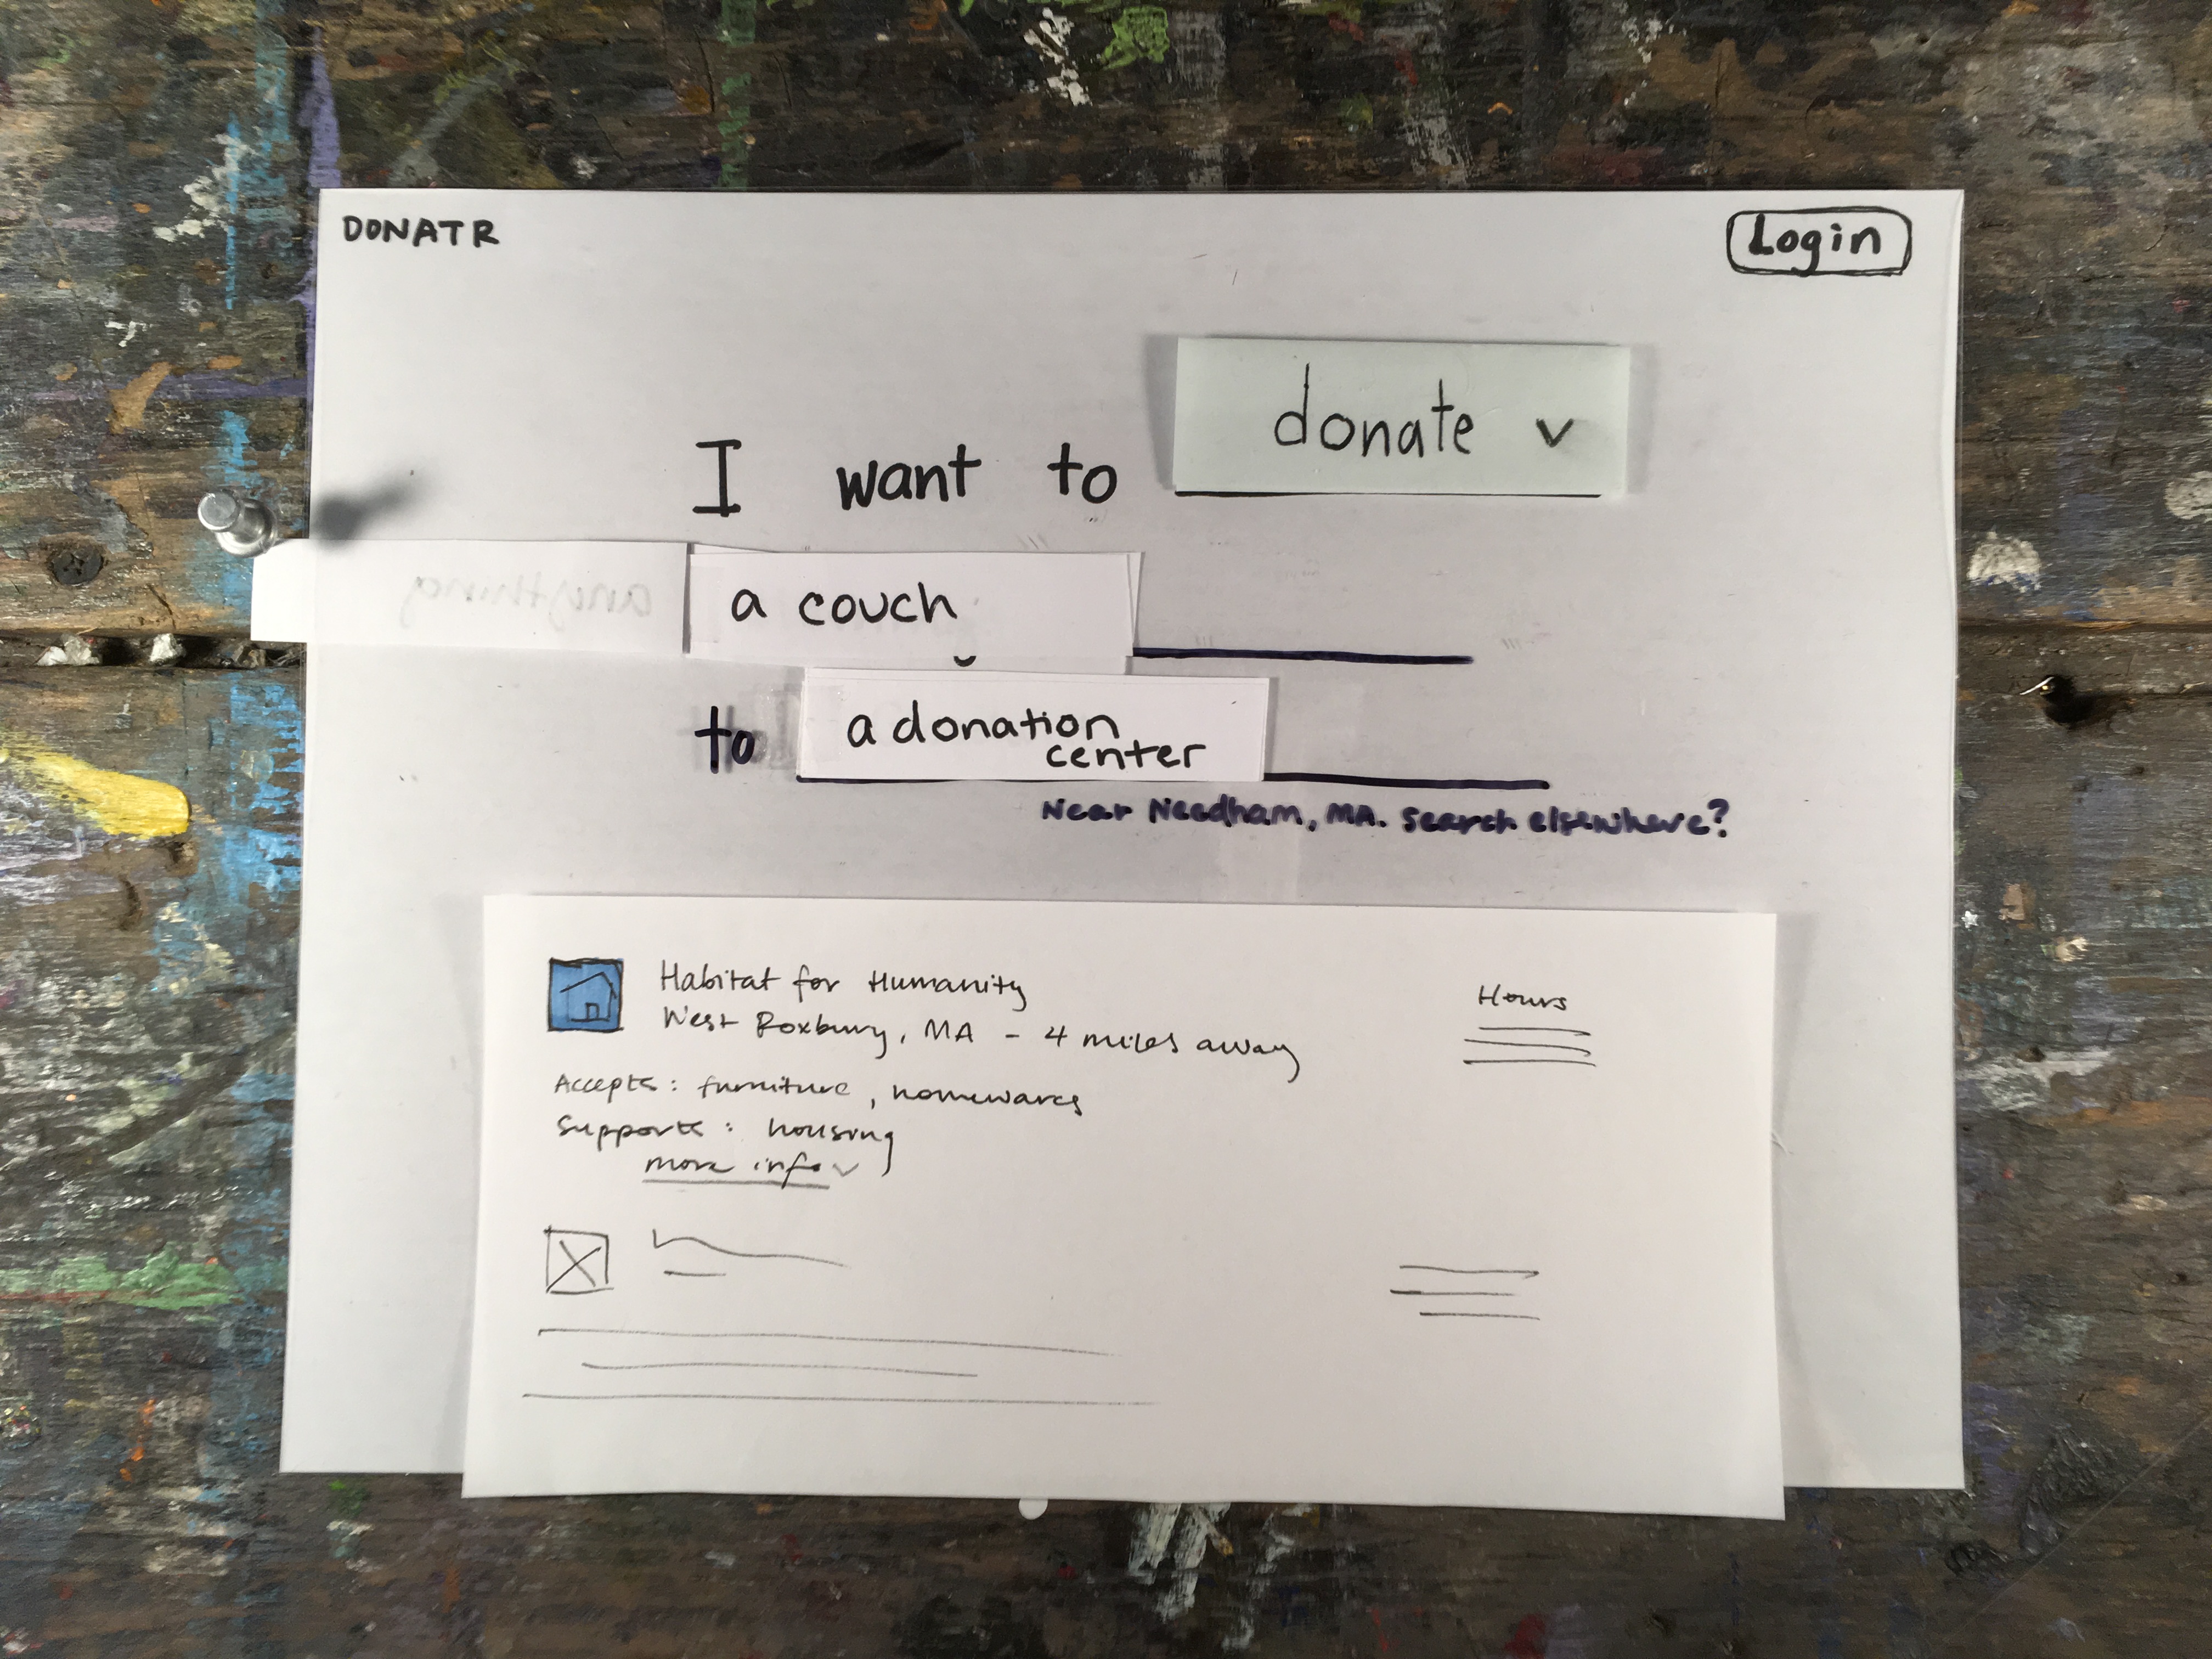 DONATR
Login
I want to donate v
anything
a couch
to a donation
center
Near Needham, MA. Search elsewhere?
Habitat for Humanity
West Roxbury, MA - 4 miles away
Hours
Accepts: furniture, homewares
Supports: housing
more info v